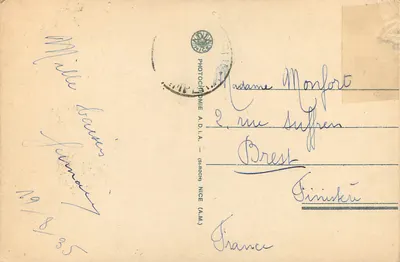 Mille baisers
Germaine
19/8/35
PHOTOCHROMIE A.D.I.A. — NICE (A.M.)
Madame Monfort
2, rue Suffren
Brest
Finistère
France